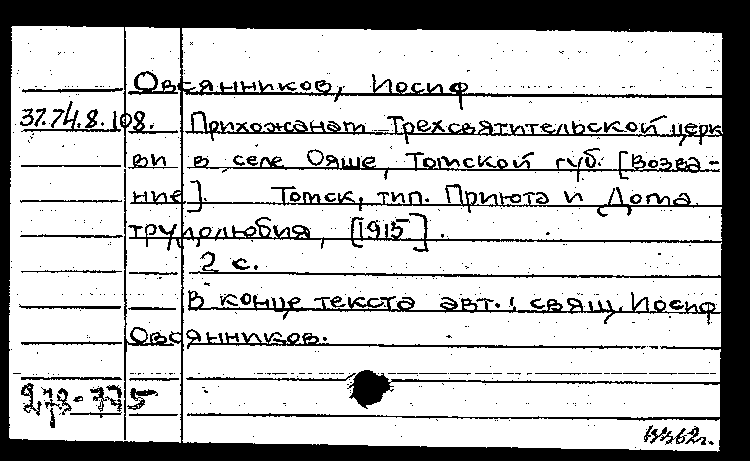 Овсянников, Иосиф
37.74.8.108. Прихожанам Трехсвятительской церк
ви в селе Ояше, Томской губ. [Возва-
ние]. Томск, тип. Приюта и Дома
трудолюбия, [1915].
2 с.
В конце текста авт.: свящ. Иосиф
Овсянников.
278-775